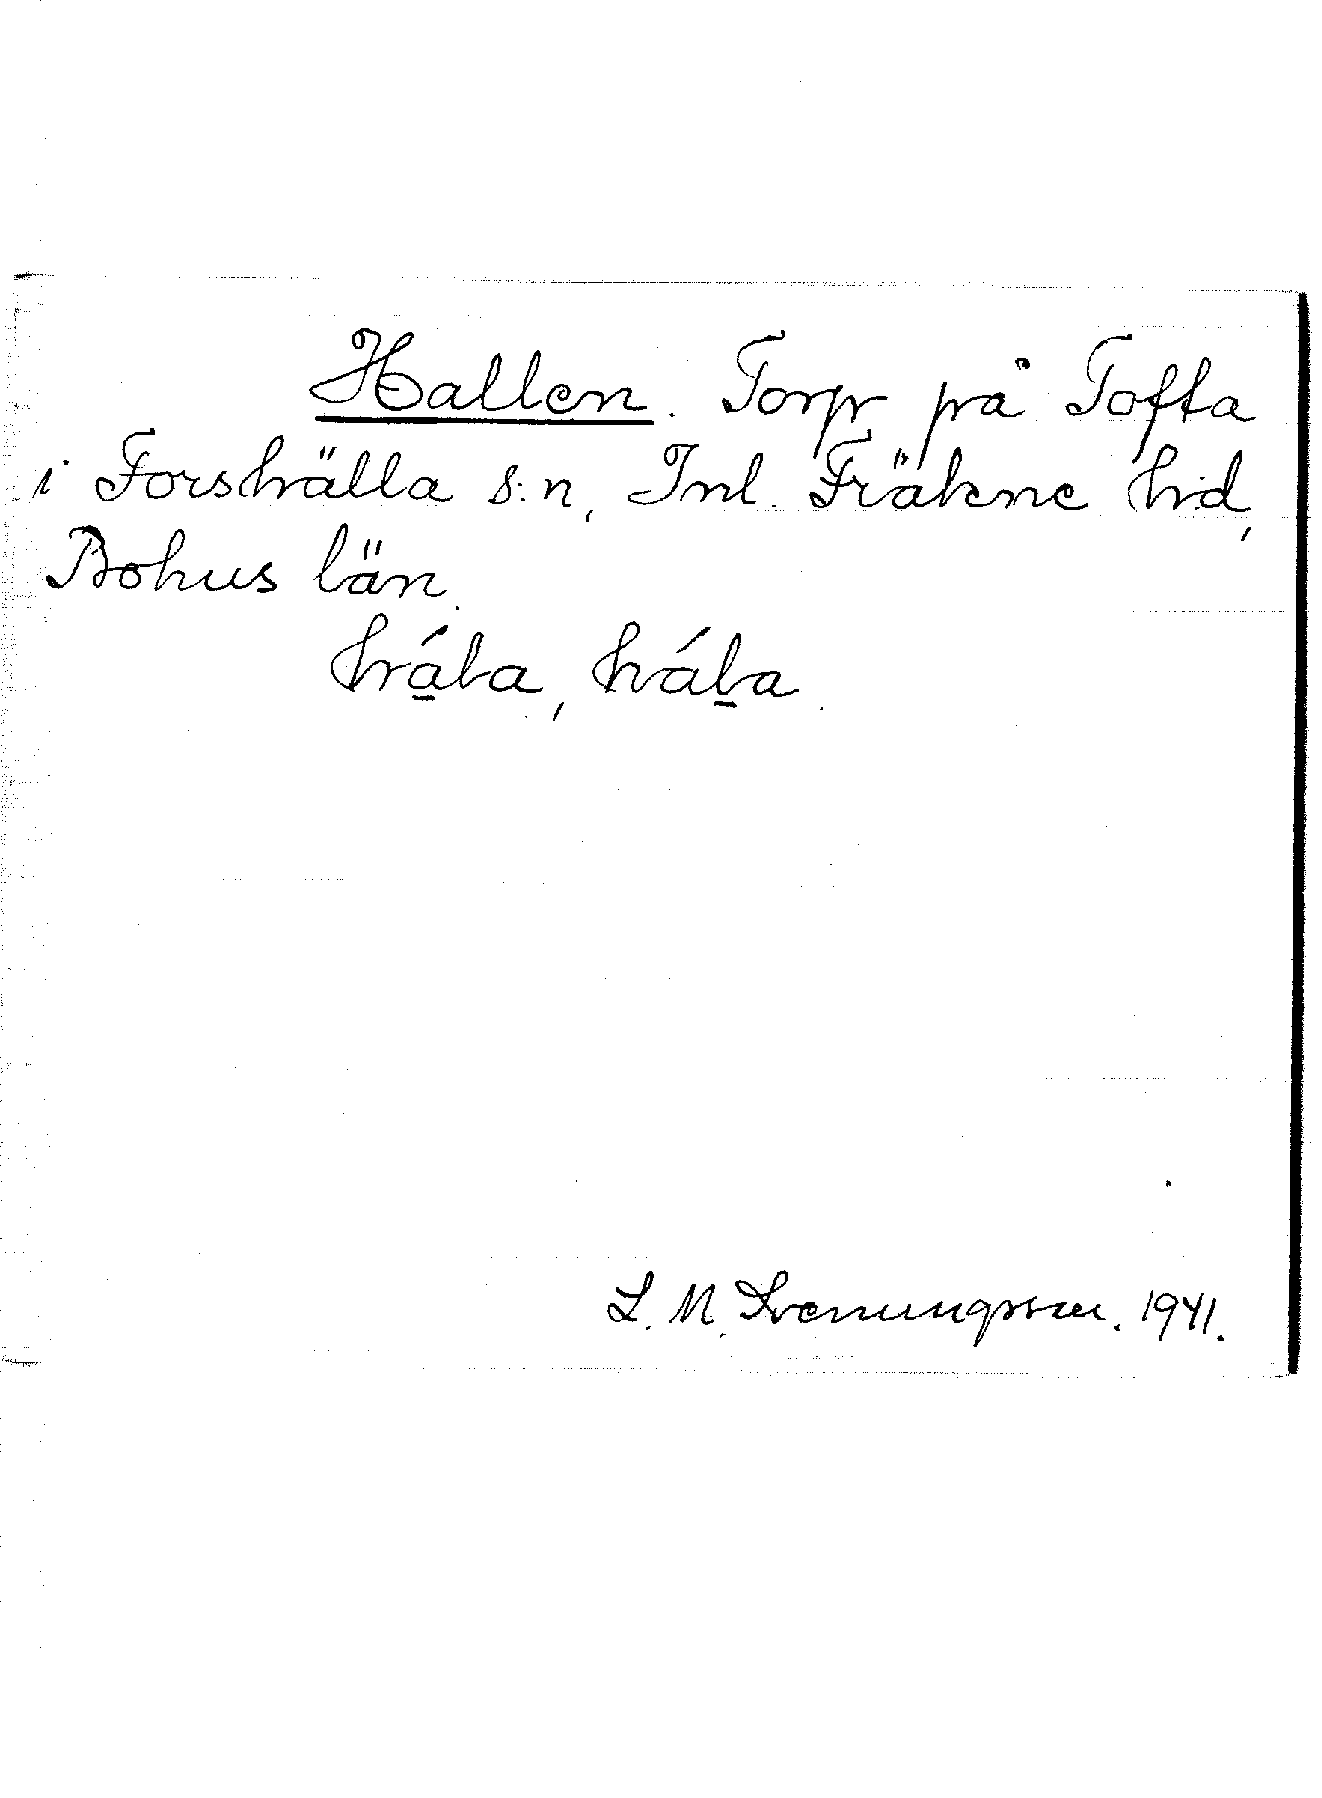 Hallen. Torp på Tofta
i Forshälla s:n, Inl. Fräkne hd,
Bohus län.
há̱la, háḻa.
L. M. Svenungsson. 1941.